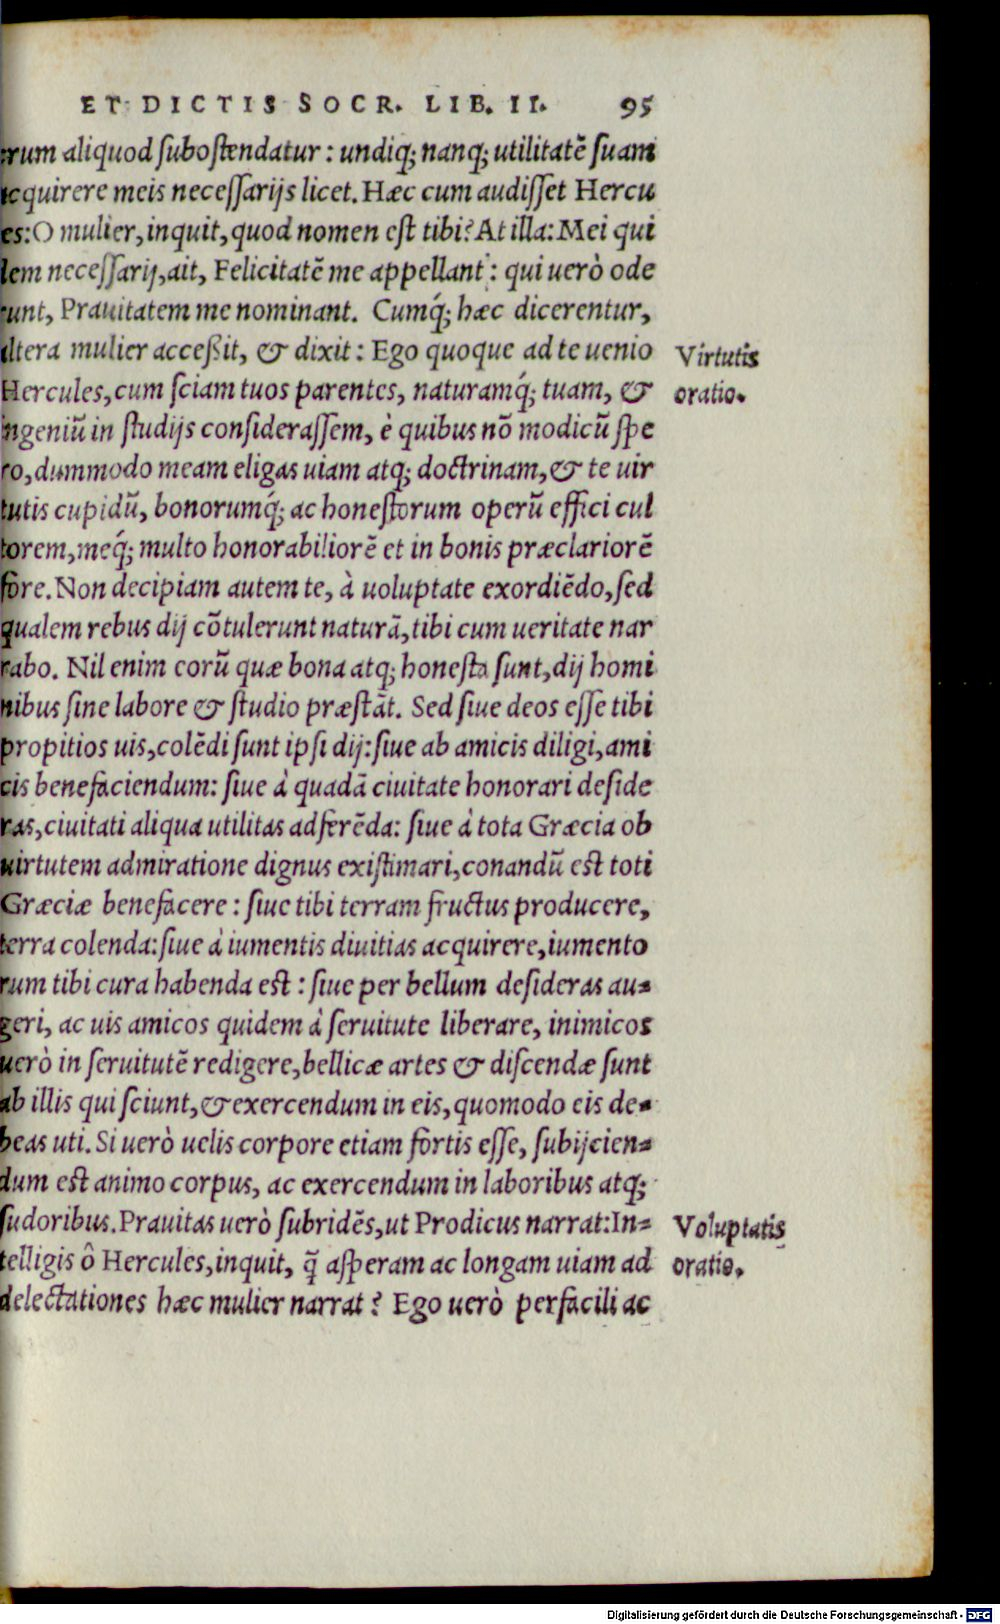 ET DICTIS SOCR. LIB. II. 95
rum aliquod subostendatur : undiq; nanq; utilitatẽ suam
acquirere meis necessarijs licet. Hæc cum audisset Hercu
es: O mulier, inquit, quod nomen est tibi? At illa: Mei qui
dem necessarij, ait, Felicitatẽ me appellant : qui uerò ode
runt, Prauitatem me nominant. Cumq́; hæc dicerentur,
altera mulier acceßit, & dixit : Ego quoque ad te uenio
Virtutis
Hercules, cum sciam tuos parentes, naturamq́; tuam, &
oratio.
ingeniũ in studijs considerassem, è quibus nõ modicũ spe
ro, dummodo meam eligas uiam atq; doctrinam, & te uir
tutis cupidũ, bonorumq́; ac honestorum operũ effici cul
torem, meq́; multo honorabiliorẽ et in bonis præclariorẽ
fore. Non decipiam autem te, à uoluptate exordiẽdo, sed
qualem rebus dij cõtulerunt naturã, tibi cum ueritate nar
rabo. Nil enim eorũ quæ bona atq; honesta sunt, dij homi
nibus sine labore & studio præstãt. Sed siue deos esse tibi
propitios uis, colẽdi sunt ipsi dij: siue ab amicis diligi, ami
cis benefaciendum: siue à quadã ciuitate honorari deside
ras, ciuitati aliqua utilitas adferẽda: siue à tota Græcia ob
uirtutem admiratione dignus existimari, conandũ est toti
Græciæ benefacere : siue tibi terram fructus producere,
terra colenda: siue à iumentis diuitias acquirere, iumento
rum tibi cura habenda est : siue per bellum desideras au-
geri, ac uis amicos quidem à seruitute liberare, inimicos
uerò in seruitutẽ redigere, bellicæ artes & discendæ sunt
ab illis qui sciunt, & exercendum in eis, quomodo eis de-
beas uti. Si uerò uelis corpore etiam fortis esse, subijcien-
dum est animo corpus, ac exercendum in laboribus atq;
sudoribus. Prauitas uerò subridẽs, ut Prodicus narrat: In-
Voluptatis
telligis ô Hercules, inquit, q̃ asperam ac longam uiam ad
oratio.
delectationes hæc mulier narrat? Ego uerò perfacili ac
Digitalisierung gefördert durch die Deutsche Forschungsgemeinschaft - DFG